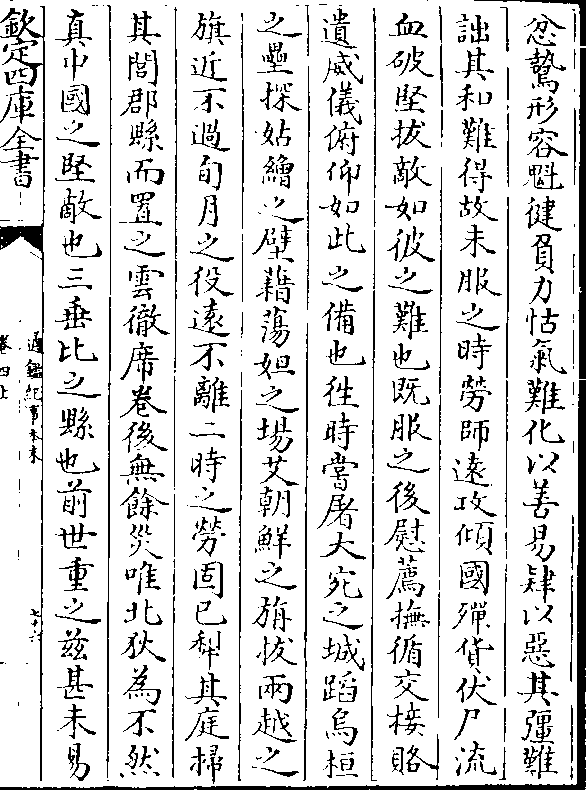 忿鷙形容魁健負力怙氣難化以善易肄以惡其彊難
詘其和難得故未服之時勞師遠攻傾國殫貨伏尸流
血破堅拔敵如彼之難也既服之後慰薦撫循交接賂
遺威儀俯仰如此之備也徃時嘗屠大宛之城蹈烏桓
之壘探姑繒之壁藉蕩姐之場艾朝鮮之旃拔兩越之
旗近不過旬月之役遠不離二時之勞固已犁其庭掃
其閭郡縣而置之雲徹席卷後無餘災唯北狄為不然
真中國之堅敵也三垂比之縣也前世重之茲甚未易
欽定四庫全書
通鑑紀事本末
卷四上
七十六